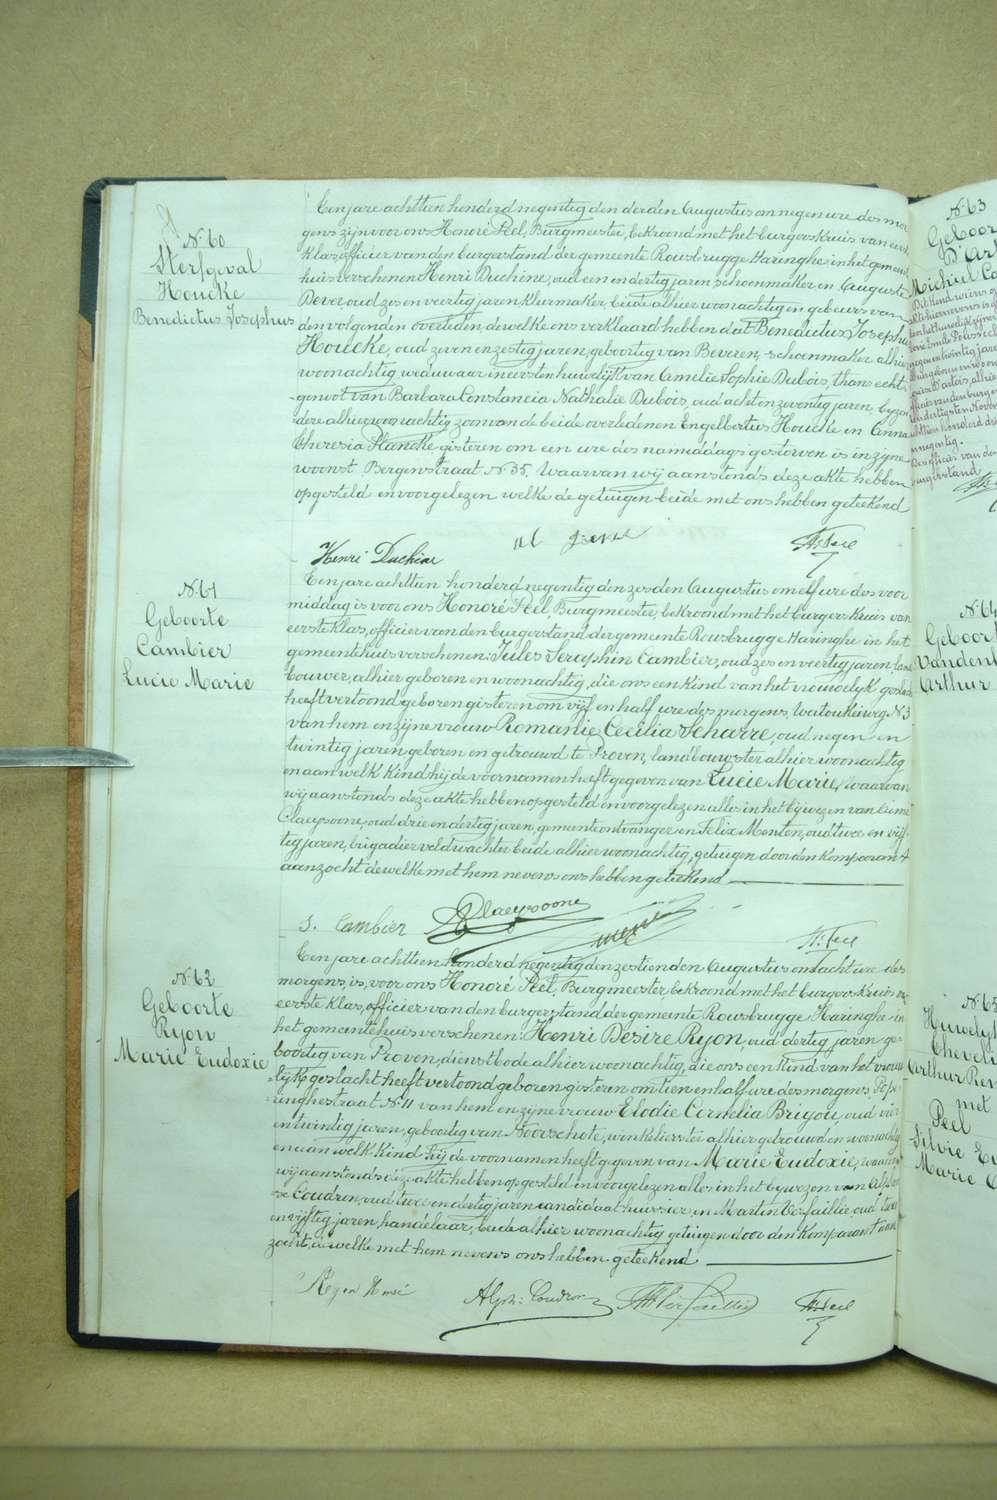 N. 60
Sterfgeval
Houcke
Benedictus Josephus
Een jare achttien honderd negentig den derden Augustus om negen ure des mor
gens zijn voor ons Honoré Peel, Burgmeester, bekroond met het burgerskruis van eerste
klas, officier van den burgerstand der gemeente Rousbrugge Haringhe in het gemeen
huis verschenen Henri Duchine, oud een en dertig jaren, schoenmaker en Auguste
Dever oud zes en veertig jaren kleermaker, beide alhier woonachtig en gebeurs van
den volgenden overleden, dewelke ons verklaard hebben dat Benedictus Josephus
Houcke, oud zeven en zestig jaren, geboortig van Beveren, schoenmaker alhier
woonachtig, weduwaar in eersten huwelijk van Amelie Sophie Dubois, thans echt-
genoot van Barbara Constancia Nathalie Dubois, oud acht en zeventig jaren, byzon
dere alhier woonachtig zoon van de beide overledenen Engelbertus Houcke en Anna
Theresia Plancke gisteren om een ure des namiddags gestorven is in zyne
woonst Bergenstraat N. 35. Waarvan wij aanstonds deze akte hebben
opgesteld en voorgelezen welke de getuigen beide met ons hebben geteekend
Henri Duchine
H. Peel
N. 61
Geboorte
Cambier
Lucie Marie
Een jare achttien honderd negentig den zesden Augustus om elf ure des voor
middag is voor ons Honoré Peel, Burgmeester, bekroond met het burgerskruis van
eerste klas, officier van den burgerstand der gemeente Rousbrugge Haringhe in het
gemeentehuis verschenen: Jules Seraphin Cambier, oud zes en veertig jaren, land
bouwer, alhier geboren en woonachtig, die ons een kind van het vrouwelyk geslacht
heeft vertoond geboren gisteren om vijf en half ure des morgens, Watoukeiweg N. 3
van hem en zijne vrouw Romanie Cecilia Scharre, oud negen en
twintig jaren geboren en getrouwd te Proven, landbouwster alhier woonachtig
en aan welk kind hij de voornamen heeft gegeven van Lucie Marie, waarvan
wij aanstonds deze akte hebben opgesteld en voorgelezen alles in het bijwezen van Aimé
Claeysoone, oud drie en dertig jaren, gemeente ontvanger en Felix Menten, oud twee en vijf
tig jaren, brigadier veldwachter beide alhier woonachtig, getuigen door den komparant
aanzocht dewelke met hem nevens ons hebben geteekend
J. Cambier
A Claeysoone
H. Peel
N. 62
Geboorte
Ryon
Marie Eudoxie
Een jare achttien honderd negentig den zestienden Augustus om acht ure des
morgens, is, voor ons Honoré Peel, Burgmeester bekroond met het burgerskruis van
eerste klas, officier van den burgerstand der gemeente Rousbrugge Haringhe in
het gemeentehuis verschenen: Henri Desire Ryon, oud dertig jaren ge-
boortig van Proven, dienstbode alhier woonachtig, die ons een kind van het vrouw
lijk geslacht heeft vertoond geboren gisteren om tien en half ure des morgens, Pope
ringhestraat N. 11 van hem en zijne vrouw Elodie Cornelia Brigou, oud vier
en twintig jaren, geboortig van Noorschote, winkelierster alhier getrouwd en woonachtig
en aan welk kind hij de voornamen heeft gegeven van Marie Eudoxie, waarvan
wij aanstonds deze akte hebben opgesteld en voorgelezen alles in het bijwezen van Alphon
se Coudron, oud twee en dertig jaren candidaat huissier, en Martin Verfaillie, oud twee
en vijftig jaren, handelaar, beide alhier woonachtig getuigen door den komparant aan
zocht, dewelke met hem nevens ons hebben geteekend
Alph: Coudron
M Verfaillie
H. Peel
N. 63
Michiel
N. 64
Arthur
N. 65
met
Peel
Silvie
Marie